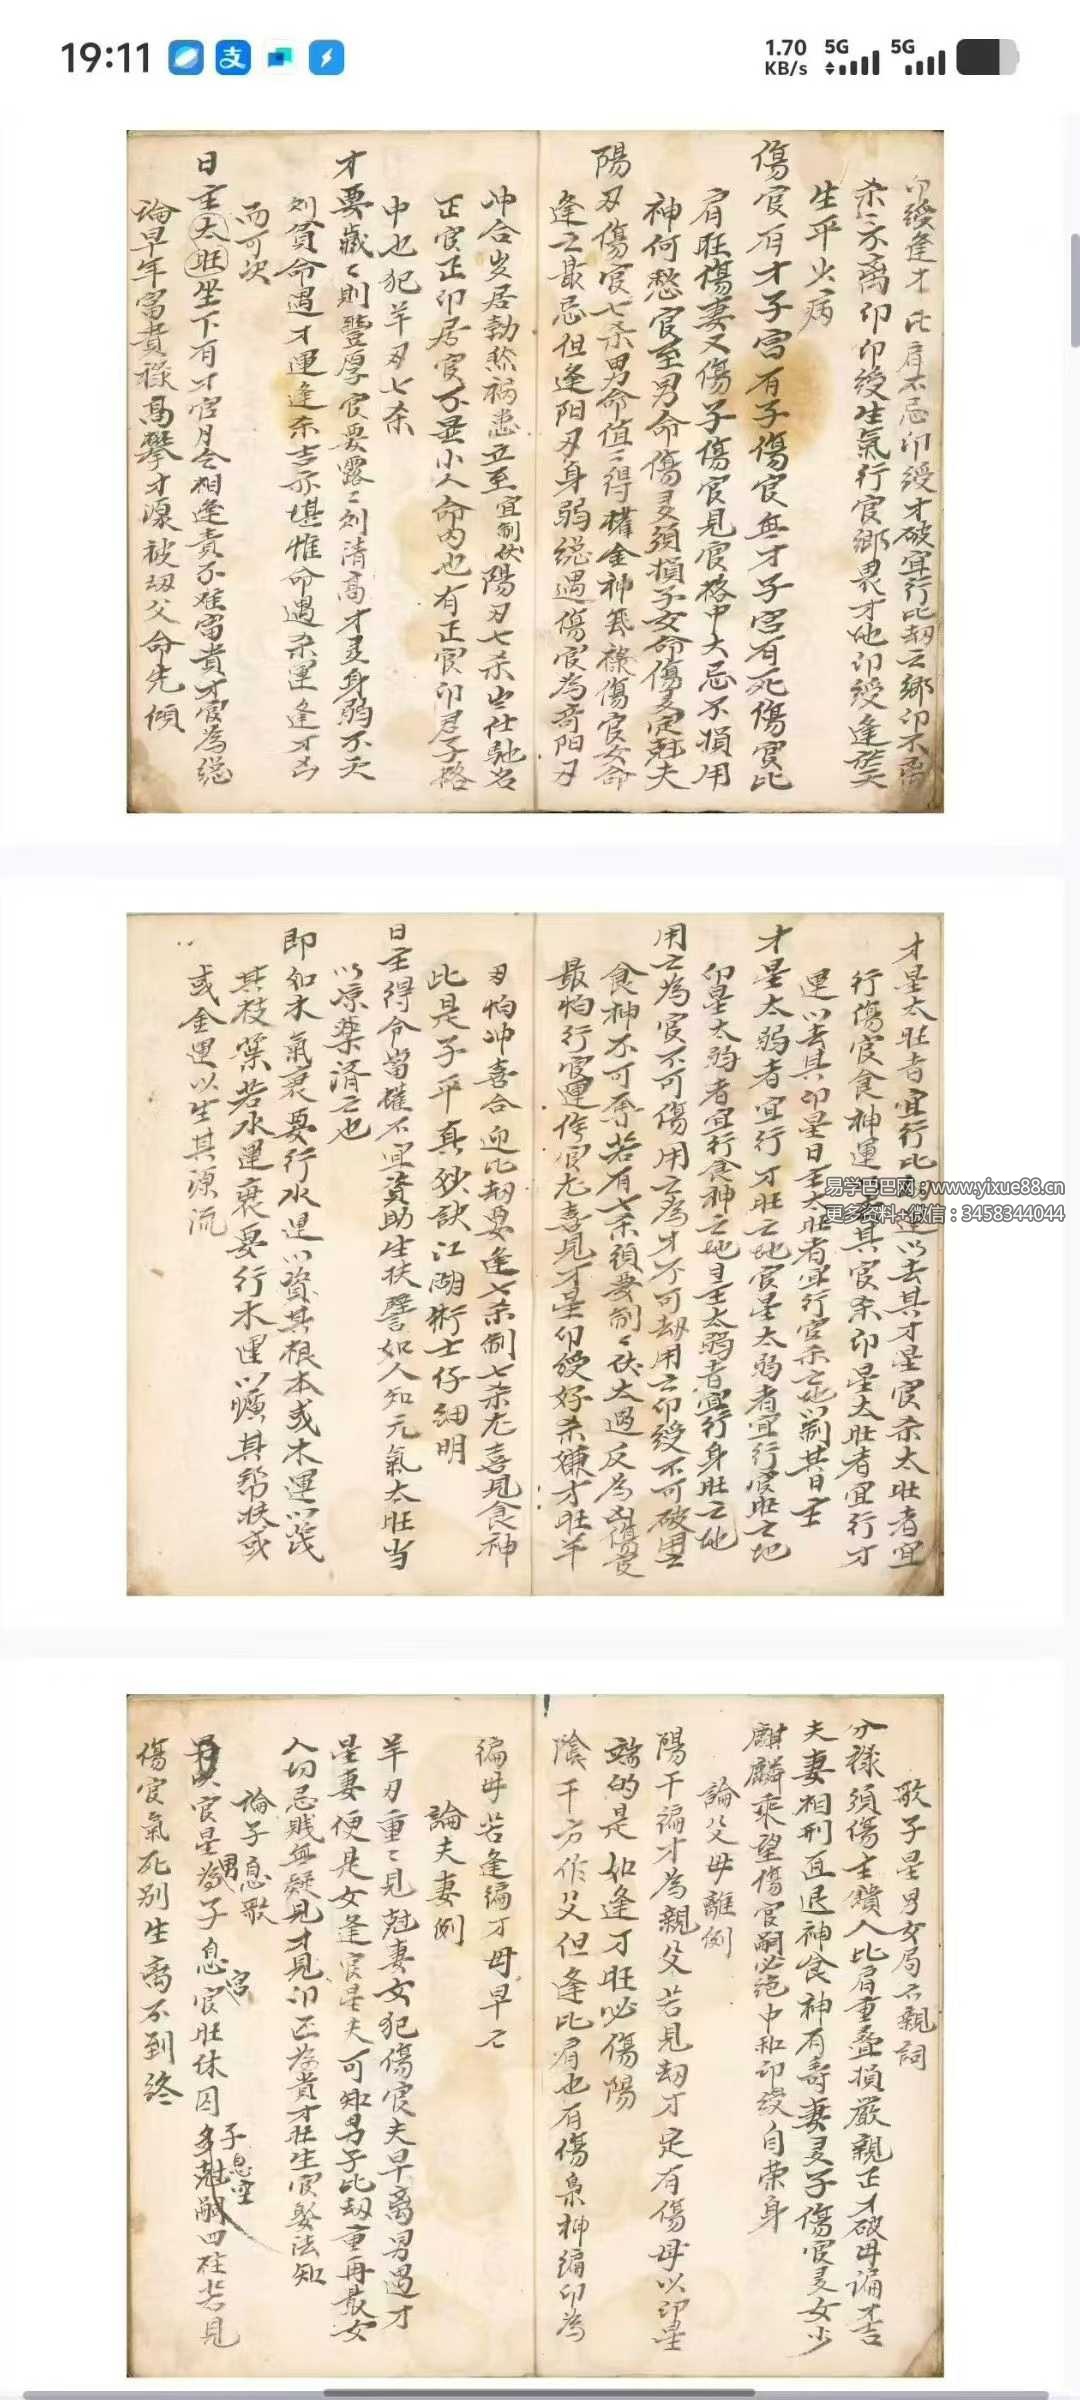 19:11
1.70 KB/s 5G 5G
印綬逢才比肩不忌印綬才破宜行比刼之鄉印不离
杀杀不离印印綬生氣行官鄉畏才地印綬逢
生平少病
傷官有才子宮有子傷官無才子宮有死傷官比
肩旺傷妻又傷子傷官見官格中大忌不損用
神何愁官至男命傷多須損子女命傷多定尅夫
陽刃傷官七杀男命值之得權金神無祿傷官女命
逢之最忌但逢阳刃身弱縂遇傷官為奇阳刃
冲合岁居勃然祸患立至宜制伏陽刃七杀出仕馳名
正官正印居官不是小人命内也有正官印君子格
中也犯羊刃七杀
才要藏〻則豐厚官要露〻則清高才多身弱不夭
則貧命遇才運逢杀吉亦堪惟命遇杀運逢才凶
而可决
日主太旺坐下有才官月令相逢貴不难富貴才官為縂
論早年富貴祿高攀才源被刼父命先傾
才星太旺者宜行比刼運以去其才星官杀太旺者宜
行傷官食神運以去其官杀印星太旺者宜行才
運以去其印星日主太旺者宜行官杀之地以制其日主
才星太弱者宜行才旺之地官星太弱者宜行官旺之地
印星太弱者宜行食神之地日主太弱者宜行身旺之地
用之為官不可傷用之為才不可刼用之印綬不可破用之
食神不可奪若有七杀須要制〻伏太過反為凶傷官
最怕行官運傷官尤喜見才星印綬好杀嫌才旺羊
刃怕冲喜合迎比刼要逢七杀制七杀尤喜見食神
此是子平真妙訣江湖術士仔細明
日主得令當權不宜資助生扶譬如人知元氣太旺当
以凉藥済之也
即如木氣衰要行水運以資其根本或木運以茂
其枝葉若水運衰要行木運以曠其帮扶或
或金運以生其源流
易学巴巴网：www.yixue88.cn
更多资料+微信：3458344044
歌子星男女局六親詞
分祿須傷主饋人比肩重叠損嚴親正才破母偏才吉
夫妻相刑直退神食神有壽妻多子傷官多女少
麒麟乘望傷官嗣必绝中和印綬自荣身
論父母離例
陽干偏才為親父若見刼才定有傷母以印星
端的是如逢才旺必傷陽
陰干方作父但逢比肩也有傷梟神偏印為
偏母若逢偏才母早亡
論夫妻例
羊刃重〻見尅妻女犯傷官夫早离男遇才
星妻便是女逢官星夫可知男子比刼重再最女
人切忌贱無疑見才見印正為貴才旺生官娶法知
論子息歌
男
官星為子息官旺休囚多尅嗣四柱若見
宮
子息空
傷官氣死别生离不到终